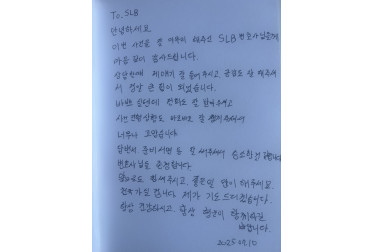 To. SLB
안녕하세요
이번 사건을 잘 마무리 해주신 SLB 변호사님들께
마음 깊이 감사드립니다.
상담할때 제 이야기 잘 들어주시고, 공감도 잘 해주셔
서 정말 큰 힘이 되었습니다.
바쁘신 와중에 전화도 잘 받아주시고
사건 진행상황도 바로바로 잘 알려주셔서
너무나 고맙습니다
답변서 준비서면도 잘 써주셔서
변호사님들 존경합니다
앞으로도 힘내주시고, 좋은일 많이 해주세요.
제가 기도드리겠습니다.
항상 건강하시고 항상 행운이 함께하길
바랍니다.
2025.09.10